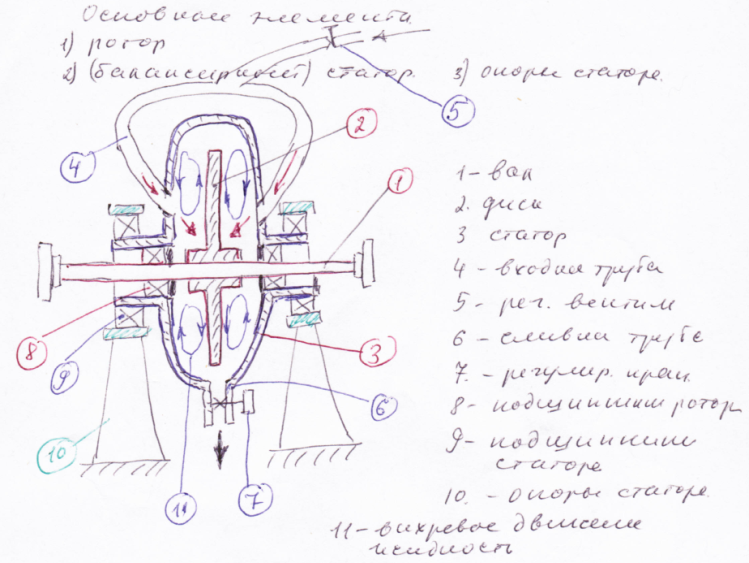 Основные элементы
1) ротор
2) (балансирный) статор. 3) опоры статора.
5
2
4
1
1 - вал
2. диск
3 статор
4 - входная труба
5 - рег. вентиль
6 - сливная труба
7. - регулир. кран.
8 - подшипники ротора
9 - подшипники
статора
10. - опоры статора.
11 - вихревое движение
жидкость
8
9
3
6
10
11
7